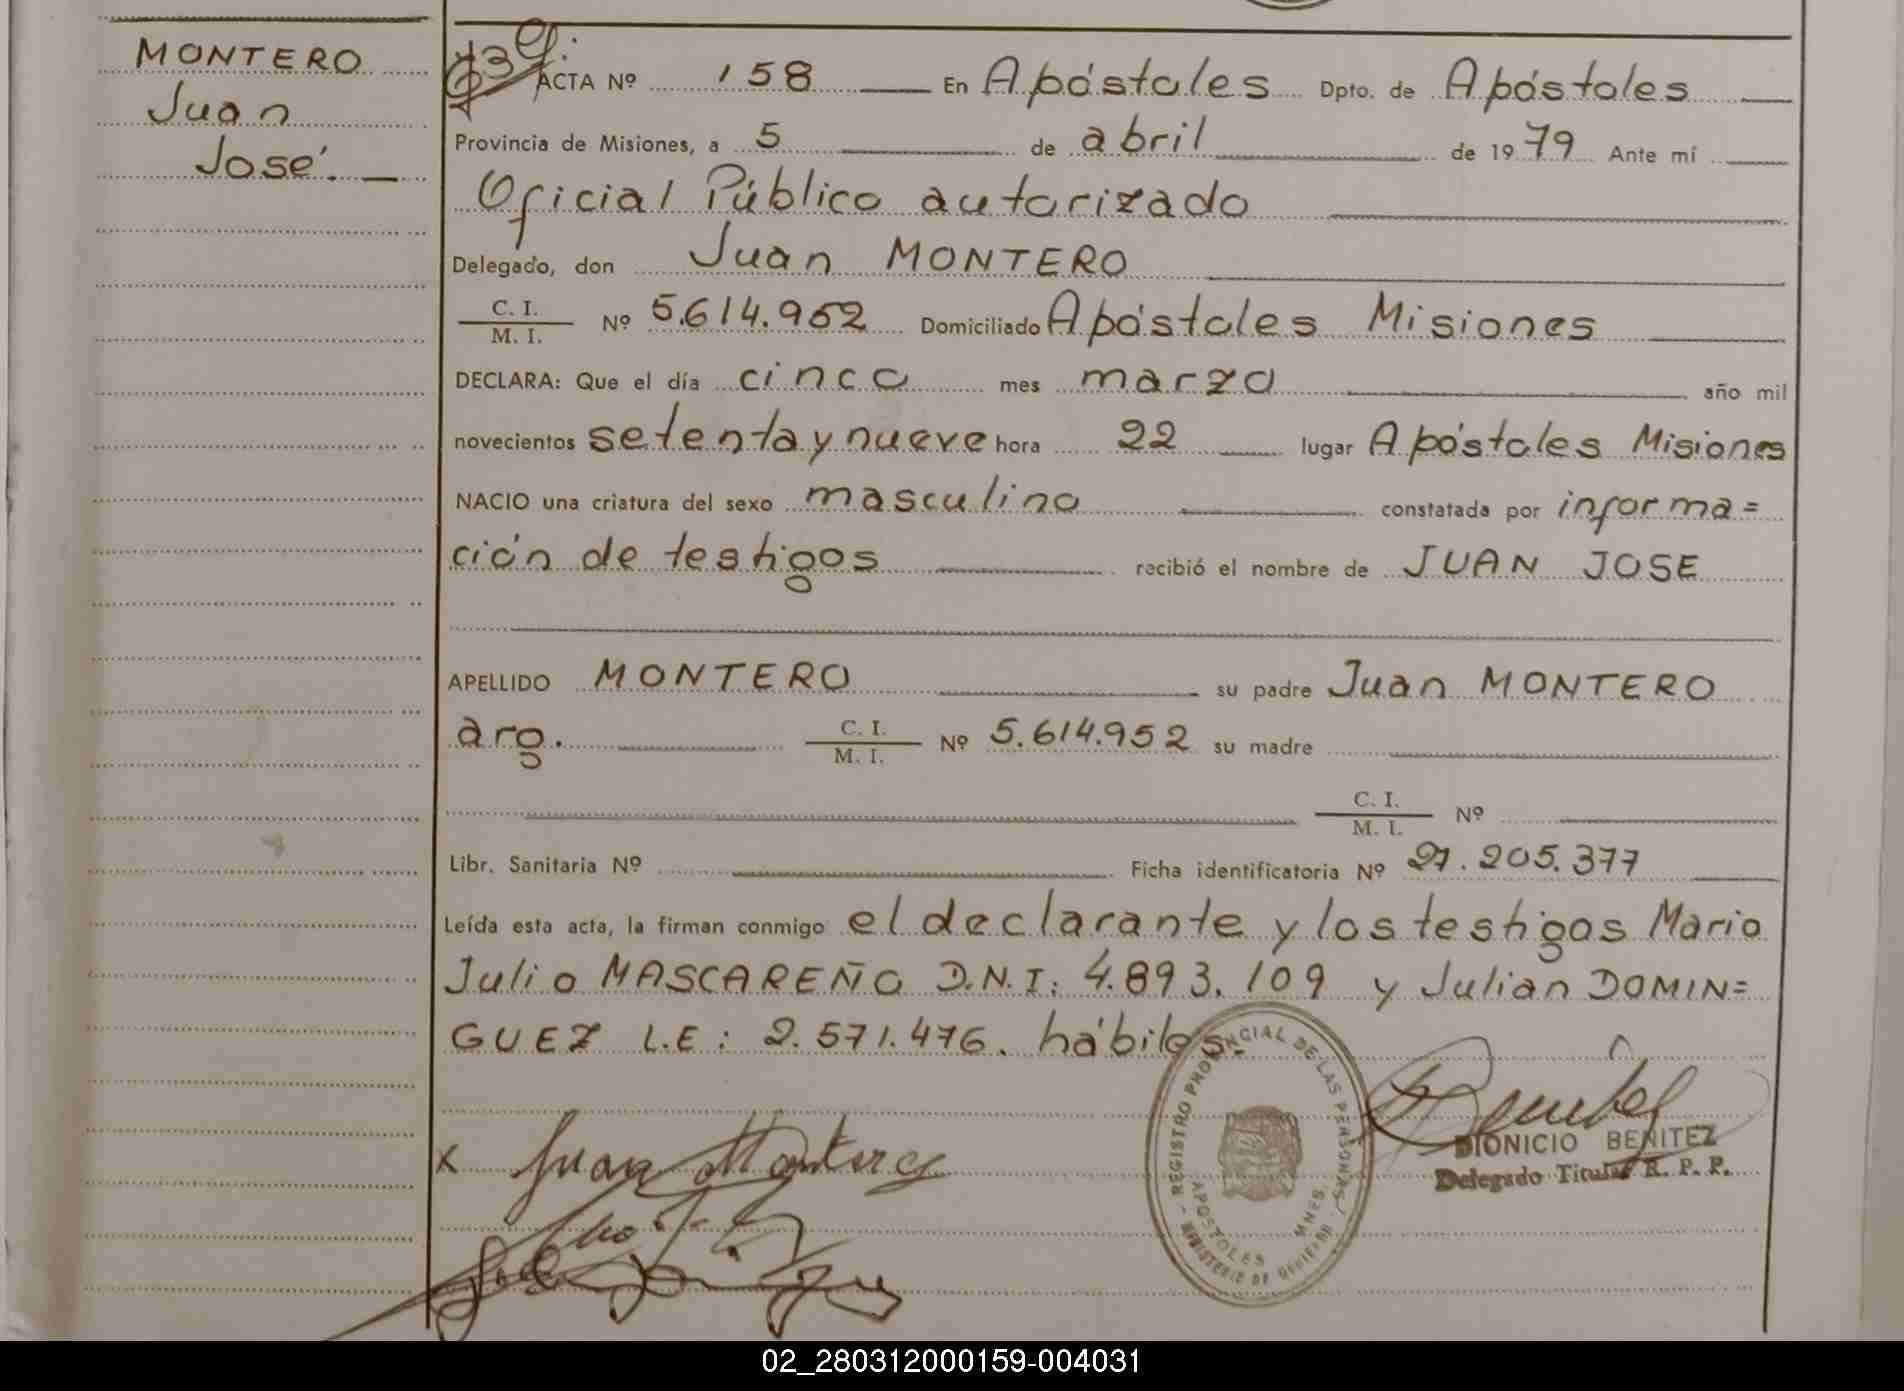 MONTERO
Juan
José.
ACTA Nº 158 En Apóstoles Dpto. de Apóstoles
Provincia de Misiones, a 5 de abril de 1979 Ante mí
Oficial Público autorizado
Delegado, don Juan MONTERO
C. I.
M. I. Nº 5.614.952 Domiciliado Apóstoles Misiones
DECLARA: Que el día cinco mes marzo año mil
novecientos setenta y nueve hora 22 lugar Apóstoles Misiones
NACIO una criatura del sexo masculino constatada por informa=
ción de testigos recibió el nombre de JUAN JOSE
APELLIDO MONTERO su padre Juan MONTERO
arg. C. I. M. I. Nº 5.614.952 su madre
C. I. M. I. Nº
Libr. Sanitaria Nº Ficha identificatoria Nº 27.205.377
Leída esta acta, la firman conmigo el declarante y los testigos Mario
Julio MASCAREÑO D.N.I: 4.893.109 y Julian DOMIN=
GUEZ L.E: 2.571.476. hábiles.
x Juan Montero
REGISTRO PROVINCIAL DE LAS PERSONAS
APOSTOLES MNES
MINISTERIO DE GOBIERNO
DIONICIO BENITEZ
Delegado Titular R. P. P.
02_280312000159-004031